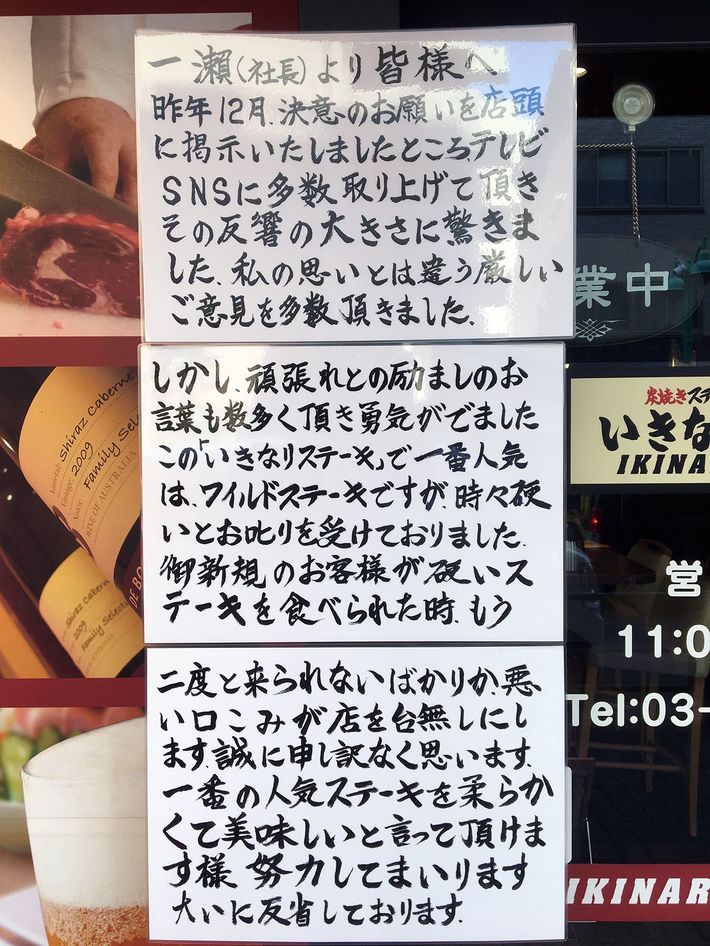 一瀬(社長)より皆様へ
昨年12月、決意のお願いを店頭
に掲示いたしましたところテレビ
SNSに多数取り上げて頂き
その反響の大きさに驚きま
した、私の思いとは違う厳しい
ご意見を多数頂きました、
しかし、頑張れとの励ましのお
言葉も数多く頂き勇気がでました
この「いきなりステーキ」で一番人気
は、ワイルドステーキですが、時々硬
いとお叱りを受けておりました、
御新規のお客様が硬いス
テーキを食べられた時、もう
二度と来られないばかりか、悪
い口こみが店を台無しにし
ます、誠に申し訳なく思います、
一番の人気ステーキを柔らか
くて美味しいと言って頂けま
す様 努力してまいります
大いに反省しております、
Shiraz Cabernet
Vintage: 2009
Notes: Family Sele
WINE OF AUSTRALIA
Shiraz Cabern
2009
Family Selecti
業中
炭焼きステ
いきな
IKINA
営
11:0
Tel:03-
IKINAR